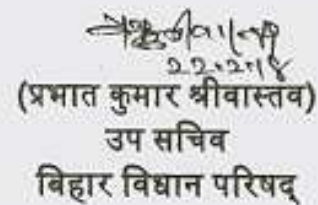 22.2.18
(प्रभात कुमार श्रीवास्तव)
उप सचिव
बिहार विधान परिषद्